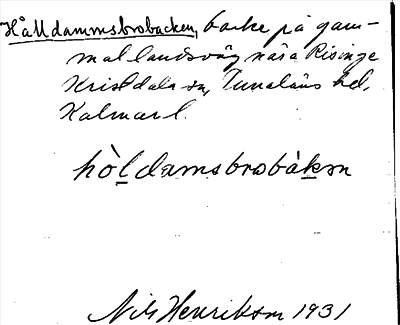 Hålldammsbrobacken, backe på gam-
mal landsväg nära Risinge
Kristdala sn, Tunaläns hd,
Kalmar l.
hò̀l damsbrobàkən
Nils Henrikson 1931